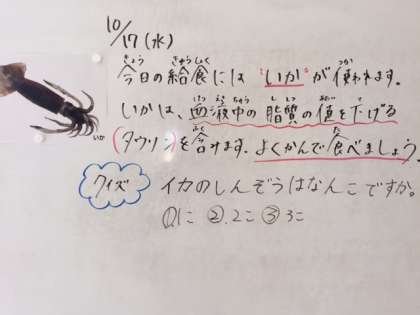 10/17(水)
きょう きゅうしょく つか
今日の給食には"いか"が使われます。
いか
いかは、血液中の脂質の値を下げる
ふく た
(タウリン)を含みます。よくかんで食べましょう。
クイズ
イカのしんぞうはなんこですか。
①1こ ②.2こ ③3こ